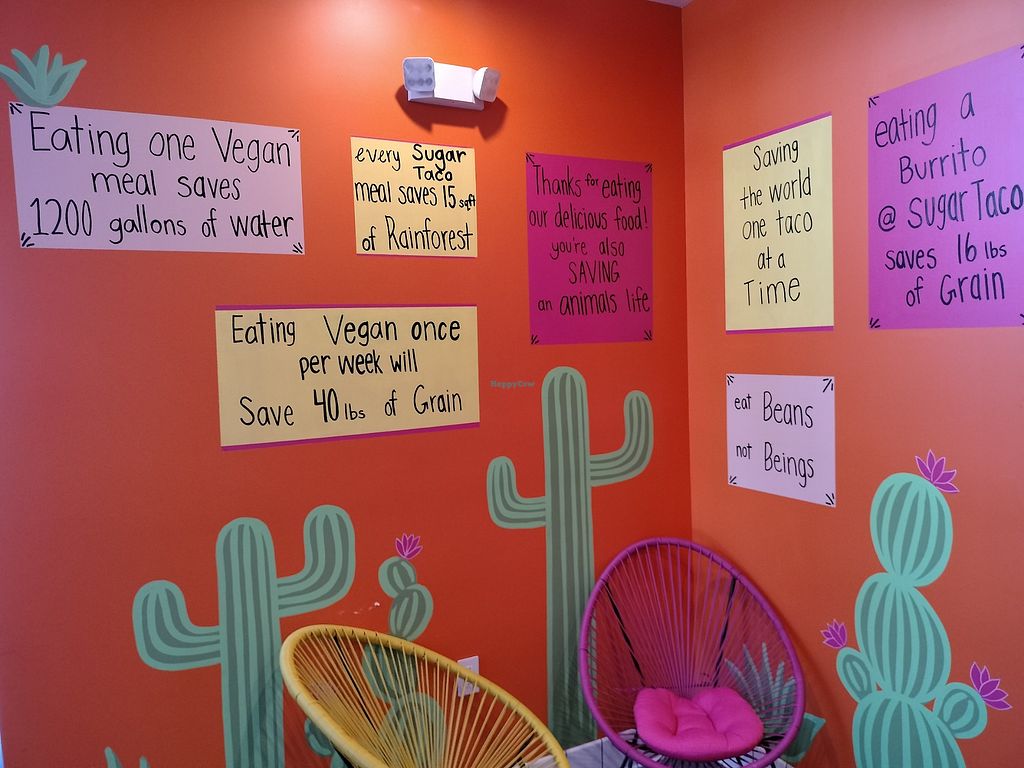 Eating one Vegan
meal saves
1200 gallons of water
every Sugar
Taco
meal saves 15 sqft
of Rainforest
Thanks for eating
our delicious food!
you're also
SAVING
an animals life
Saving
the world
one taco
at a
Time
eating a
Burrito
@ Sugar Taco
saves 16 lbs
of Grain
Eating Vegan once
per week will
Save 40 lbs of Grain
eat Beans
not Beings
HappyCow